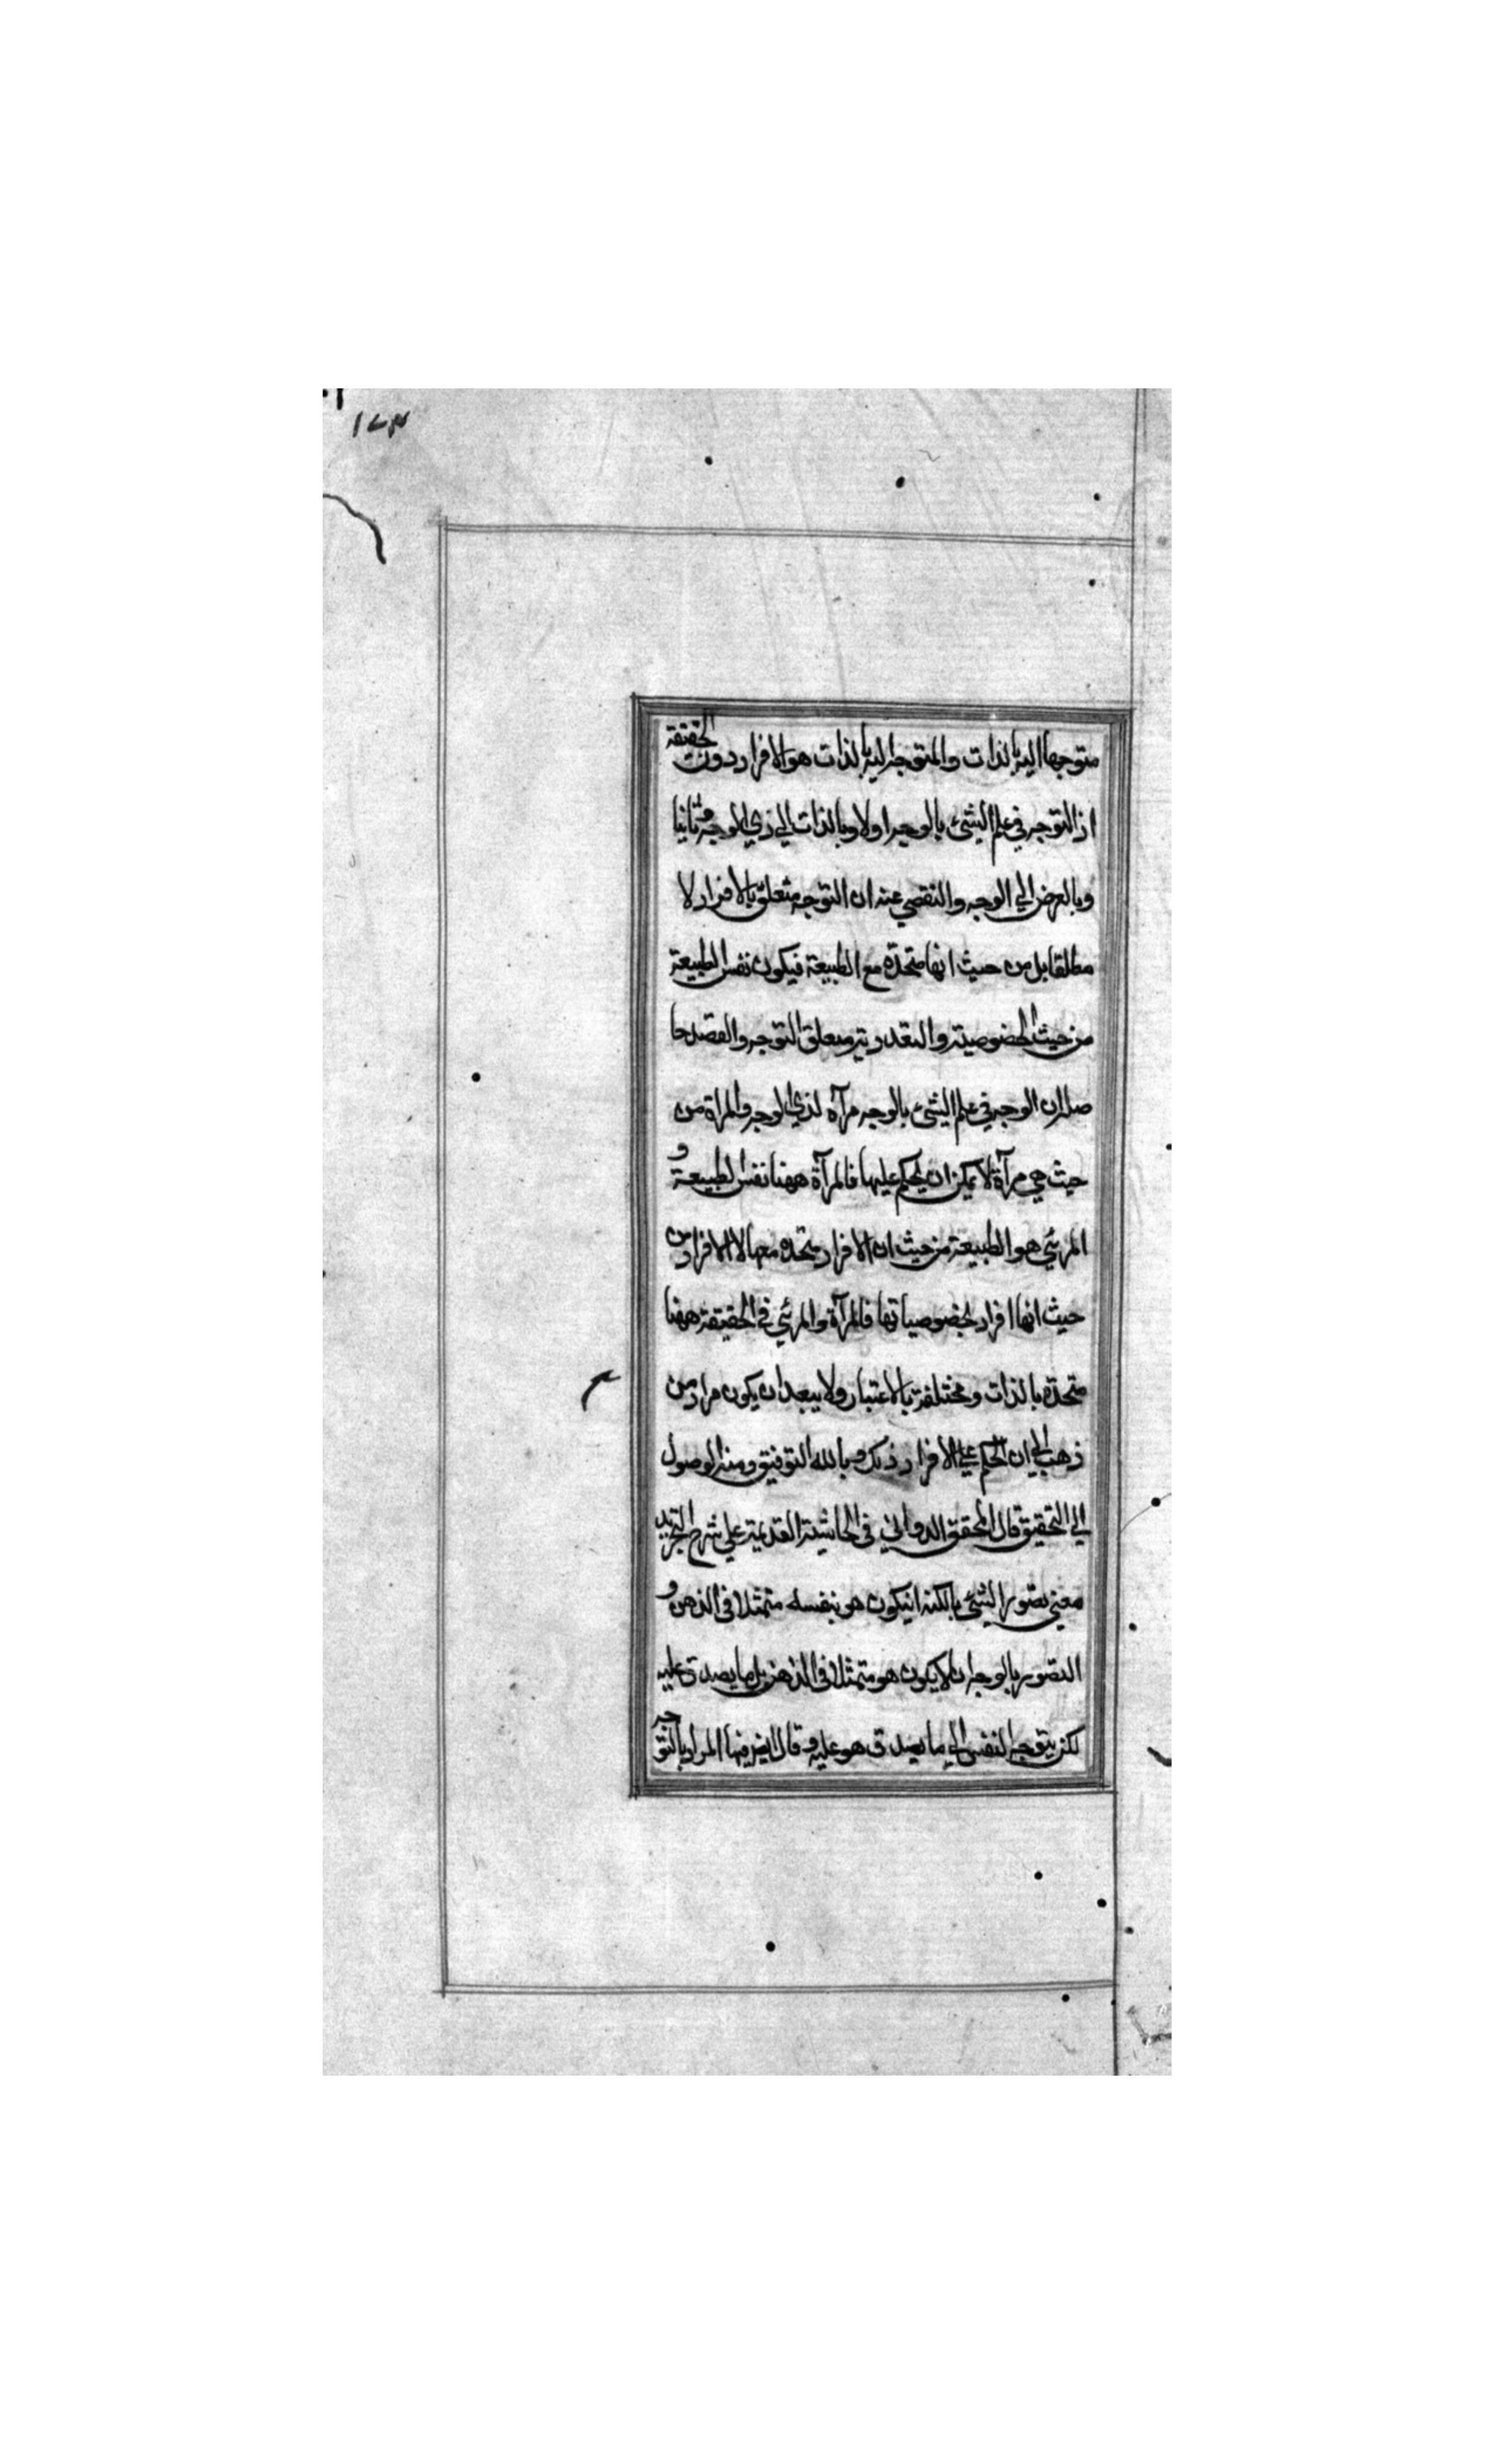 ١٧٣
متوجها اليه بالذات والمتوجه اليه بالذات هو الافراد دون الحقيقة
اذ التوجه في علم الشئ بالوجه اولا وبالذات الي ذي الوجه وثانيا
وبالعرض الي الوجه والتقصي عنه ان التوجه متعلق بالافراد لا
مطلقا بل من حيث انها متحدة مع الطبيعة فيكون نفس الطبيعة
من حيث الخصوصية والتعددية متعلق التوجه والقصد حا
صله ان الوجه في علم الشئ بالوجه مرآة لذي الوجه والمرآة من
حيث هي مرآة لا يمكن ان يحكم عليها فالمرآة ههنا نفس الطبيعة و
المرئي هو الطبيعة من حيث ان الافراد متحدة معها لا الافراد من
حيث انها افراد بخصوصياتها فالمرآة والمرئي في الحقيقة ههنا
متحدة بالذات ومختلفة بالاعتبار ولا يبعد ان يكون مراد من
ذهب الي ان الحكم علي الافراد ذلك وبالله التوفيق ومنه الوصول
الي التحقيق قال المحقق الدواني في الحاشية القديمة علي شرح التجريد
معني تصور الشئ بالكنه انيكون هو بنفسه متمثلا في الذهن و
التصور بالوجه ان لا يكون هو متمثلا في الذهن بل ما يصدق عليه
لكن يتوجه النفس الي ما يصدق هو عليه وقال ايضا فيها المراد بالتوجه